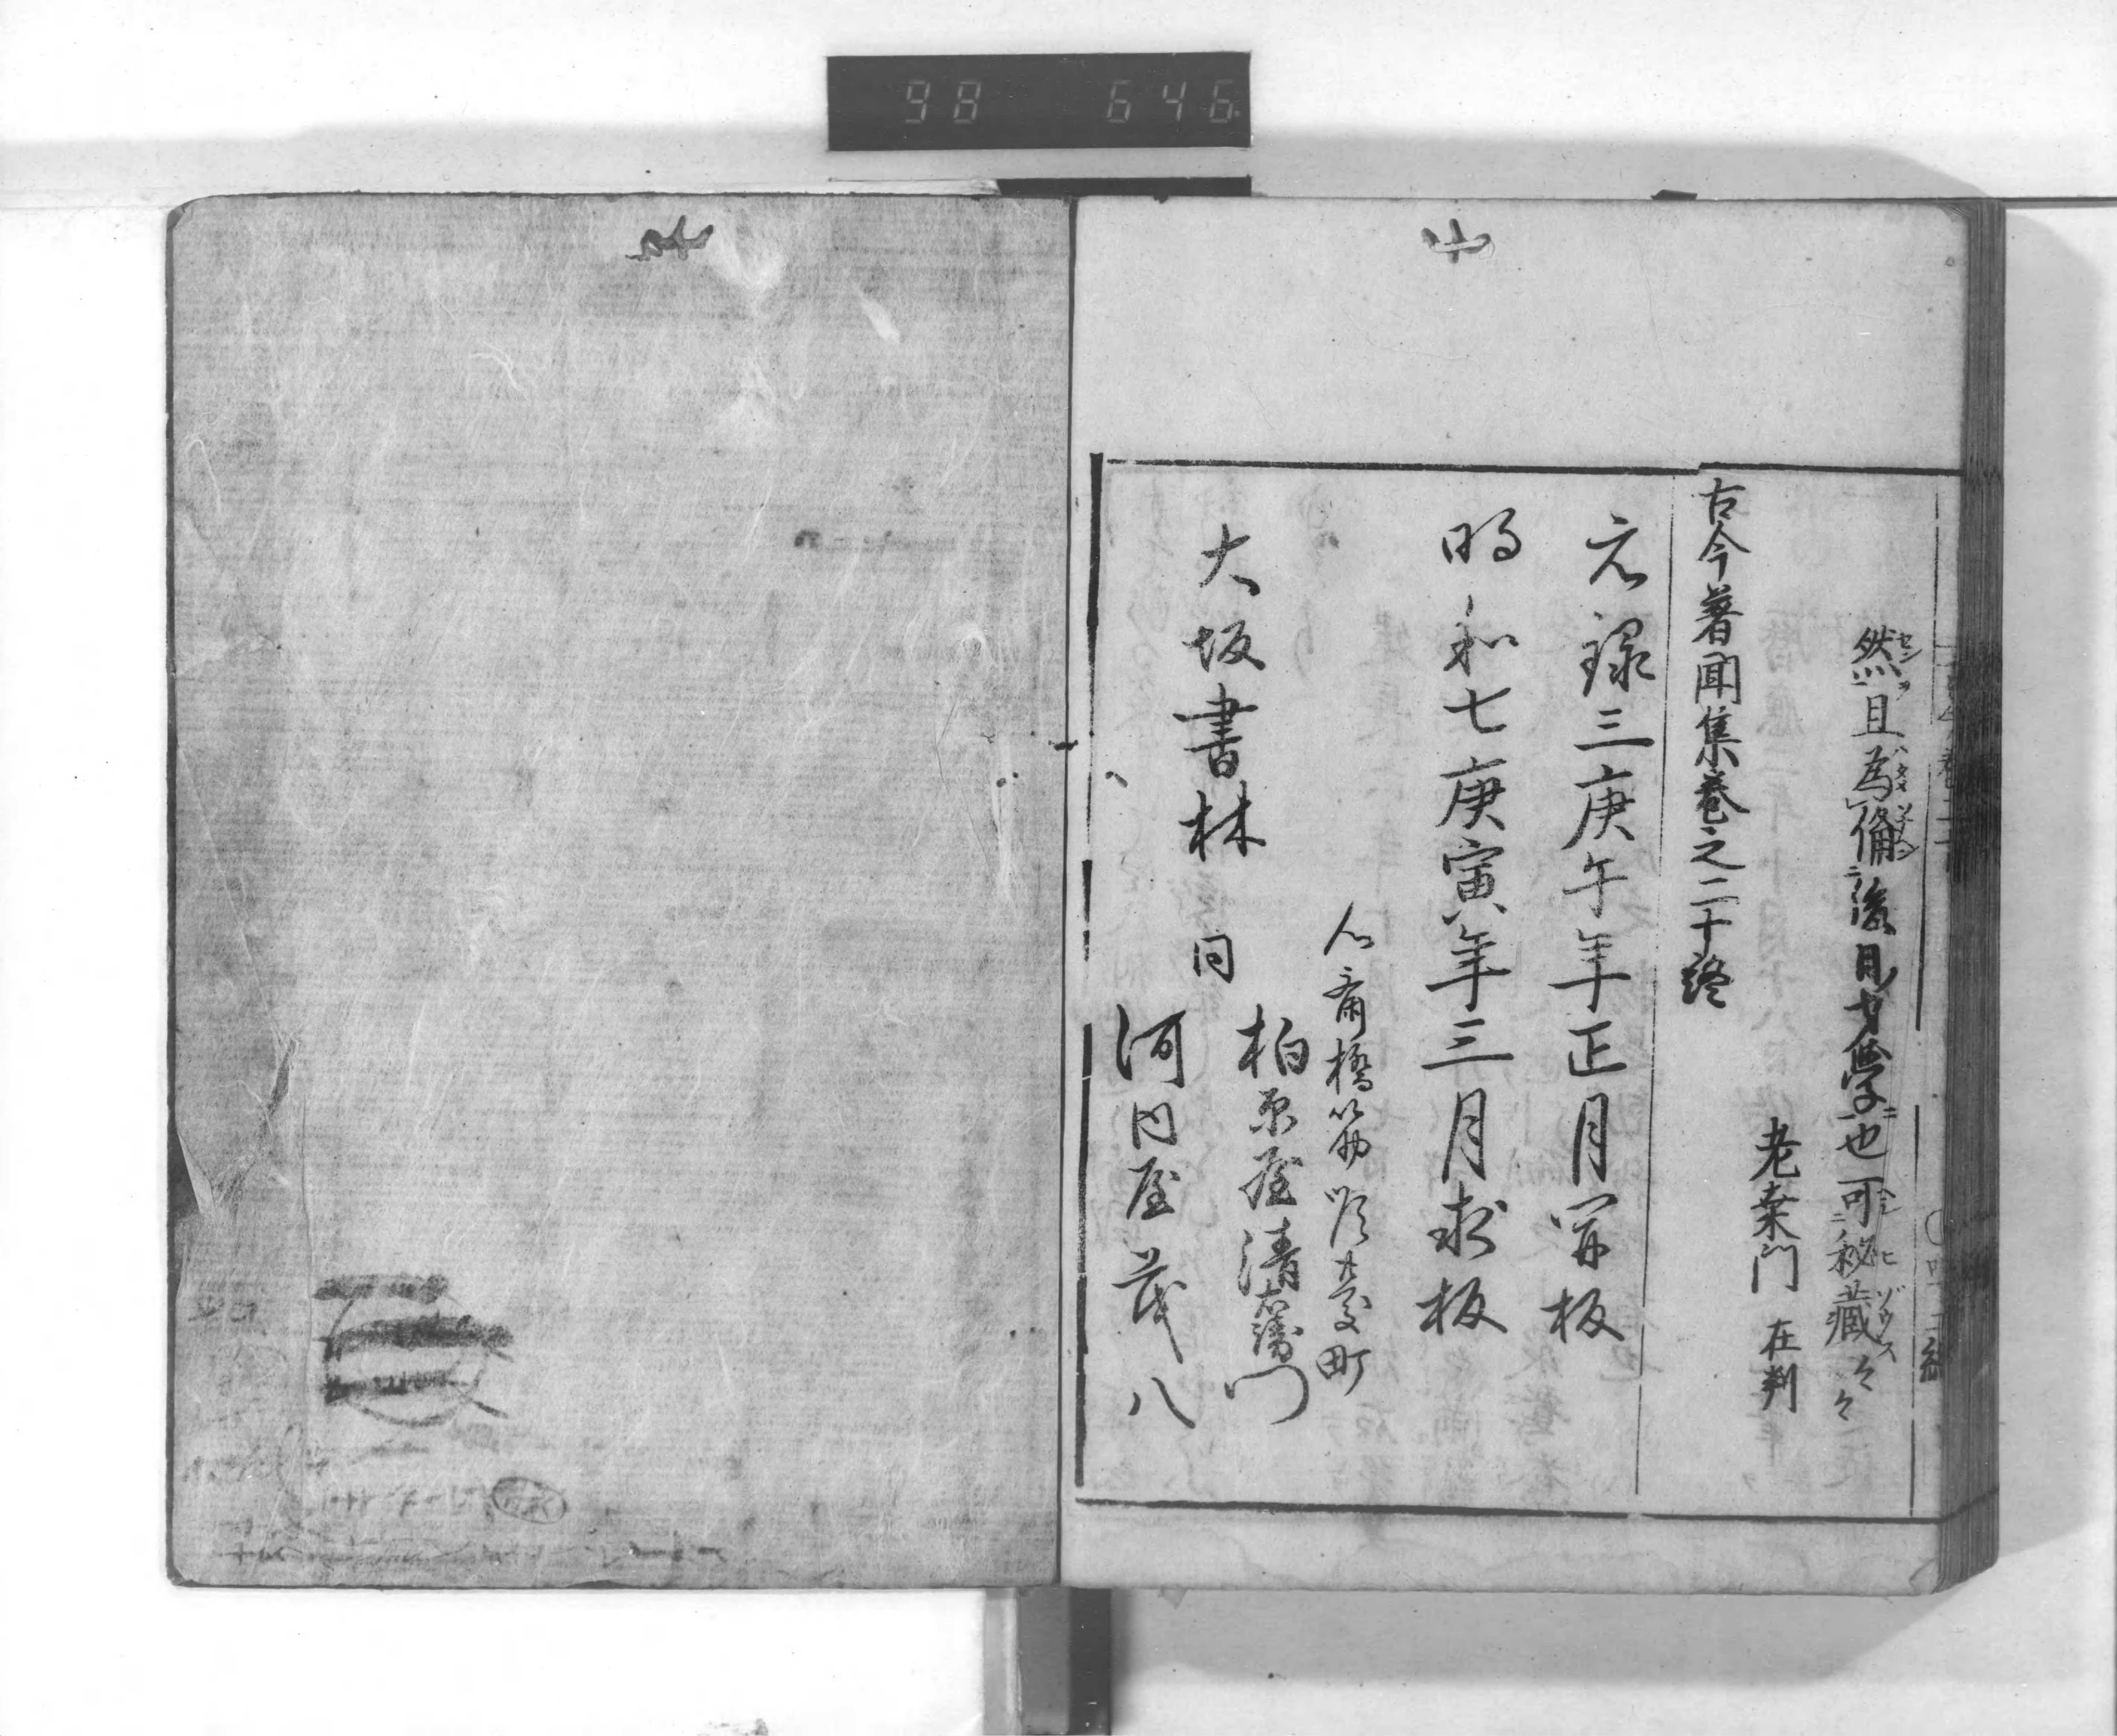 98 646
然且為備後見才学也可秘蔵々々
老桑門 在判
古今著聞集巻之二十終
元禄三庚午年正月開板
明和七庚寅年三月求板
心斎橋筋順慶町
大坂書林 柏原屋清右衛門
同 河内屋茂八